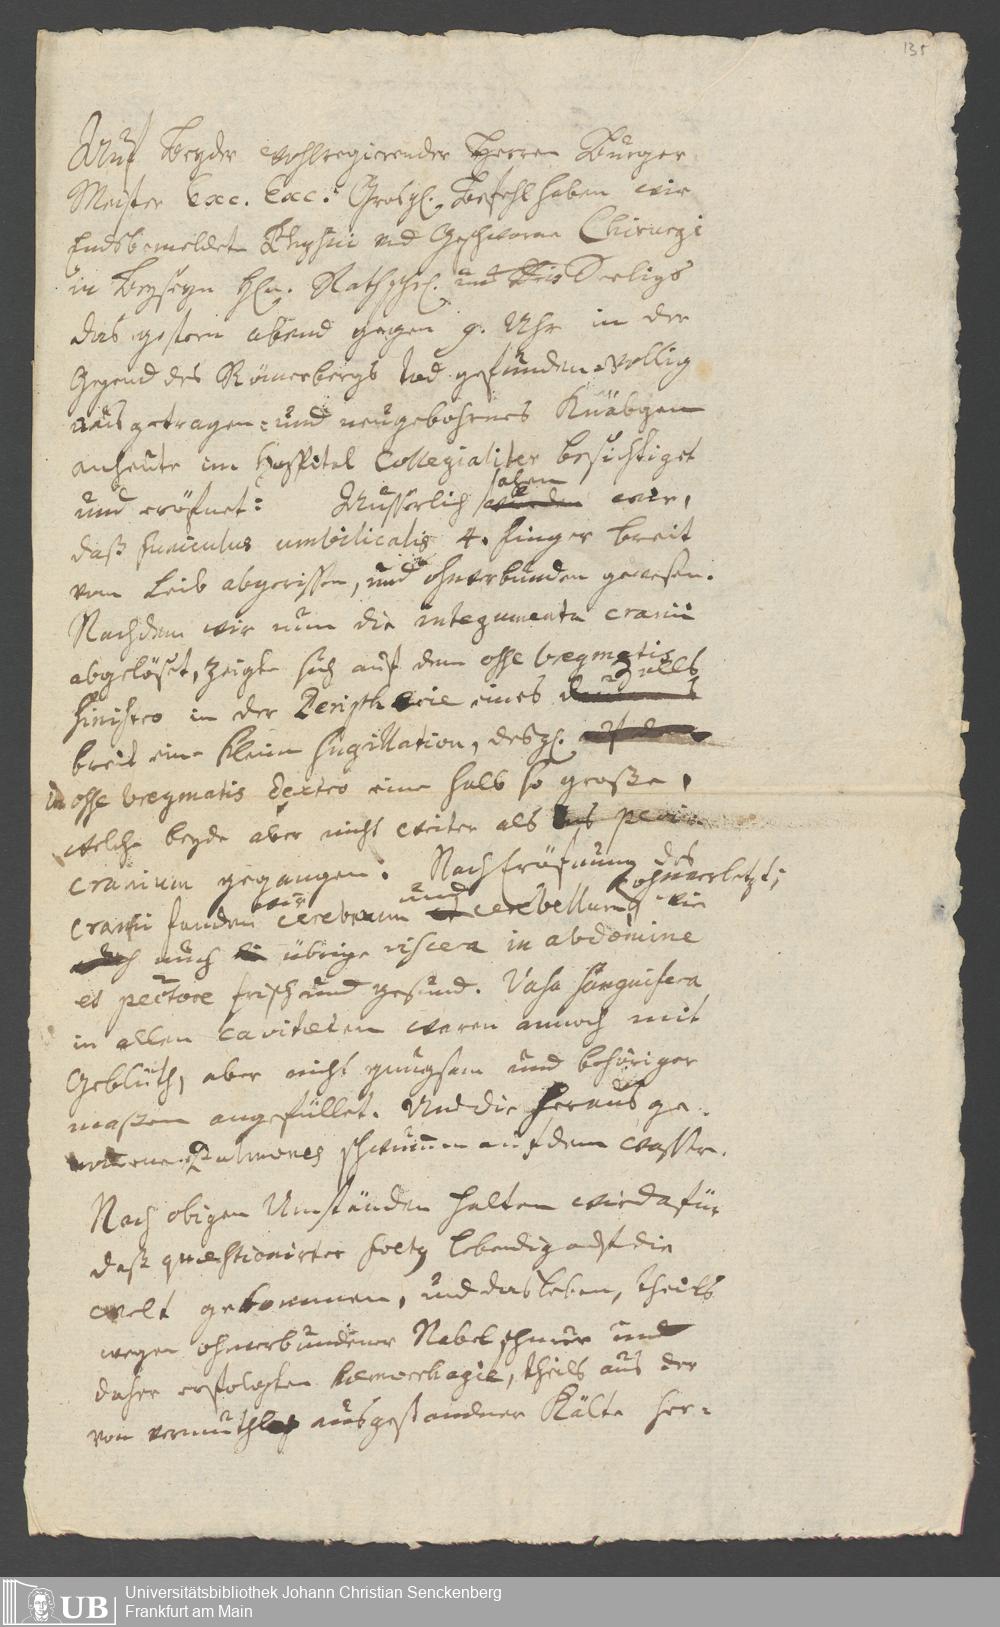 135
Auf Beyder wohlregierender Herren Burger
Meister Exc. Exc: Grosgl. Befehl haben wir
Endsbemeldete Physici und Geschworne Chirurgi
in Beyseyn Hln. Rathschrl. und Seeligs
das gestern abend gegen 9. Uhr in der
Gegend des Römerbergs tod gefundene völlig
ausgetragen- und neugebohrnes Knäbgen
anheute im Hospital Collegialiter besichtiget
und eröfnet: Äusserlich sahen wir,
daß funiculus umbilicalis 4. finger breit
vom Leib abgerissen, und ohnverbunden gewesen.
Nachdem wir nun die integumenta cranii
abgelöset, zeigte sich auf dem osse bregmatis
sinistro in der Peripherie eines Zolls
breit eine kleine Sugillation, desgl.
in osse bregmatis dextro eine halb so große,
welche beyde aber nicht weiter als peri-
cranium gegangen. Nach Eröfnung des
cranii fanden wir cerebrum und cerebellum ohnverletzt, wie
auch übrige viscera in abdomine
et pectore frisch und gesund. Vasa sanguifera
in allen Cavitæten waren annoch mit
Geblüth, aber nicht gnugsam und behöriger
maßen angefüllet. Und die herausge-
nommene Pulmones schwummen auf dem wasser.
Nach obigen Umständen halten wir dafür
daß quæstionirter foetus lebendig auf die
welt gekommen, und das leben, theils
wegen ohnverbundener Nabelschnur und
daher erfolgten hæmorrhagie, theils aus der
von vermuthl. ausgestandner Kälte her-
UB
Universitätsbibliothek Johann Christian Senckenberg
Frankfurt am Main